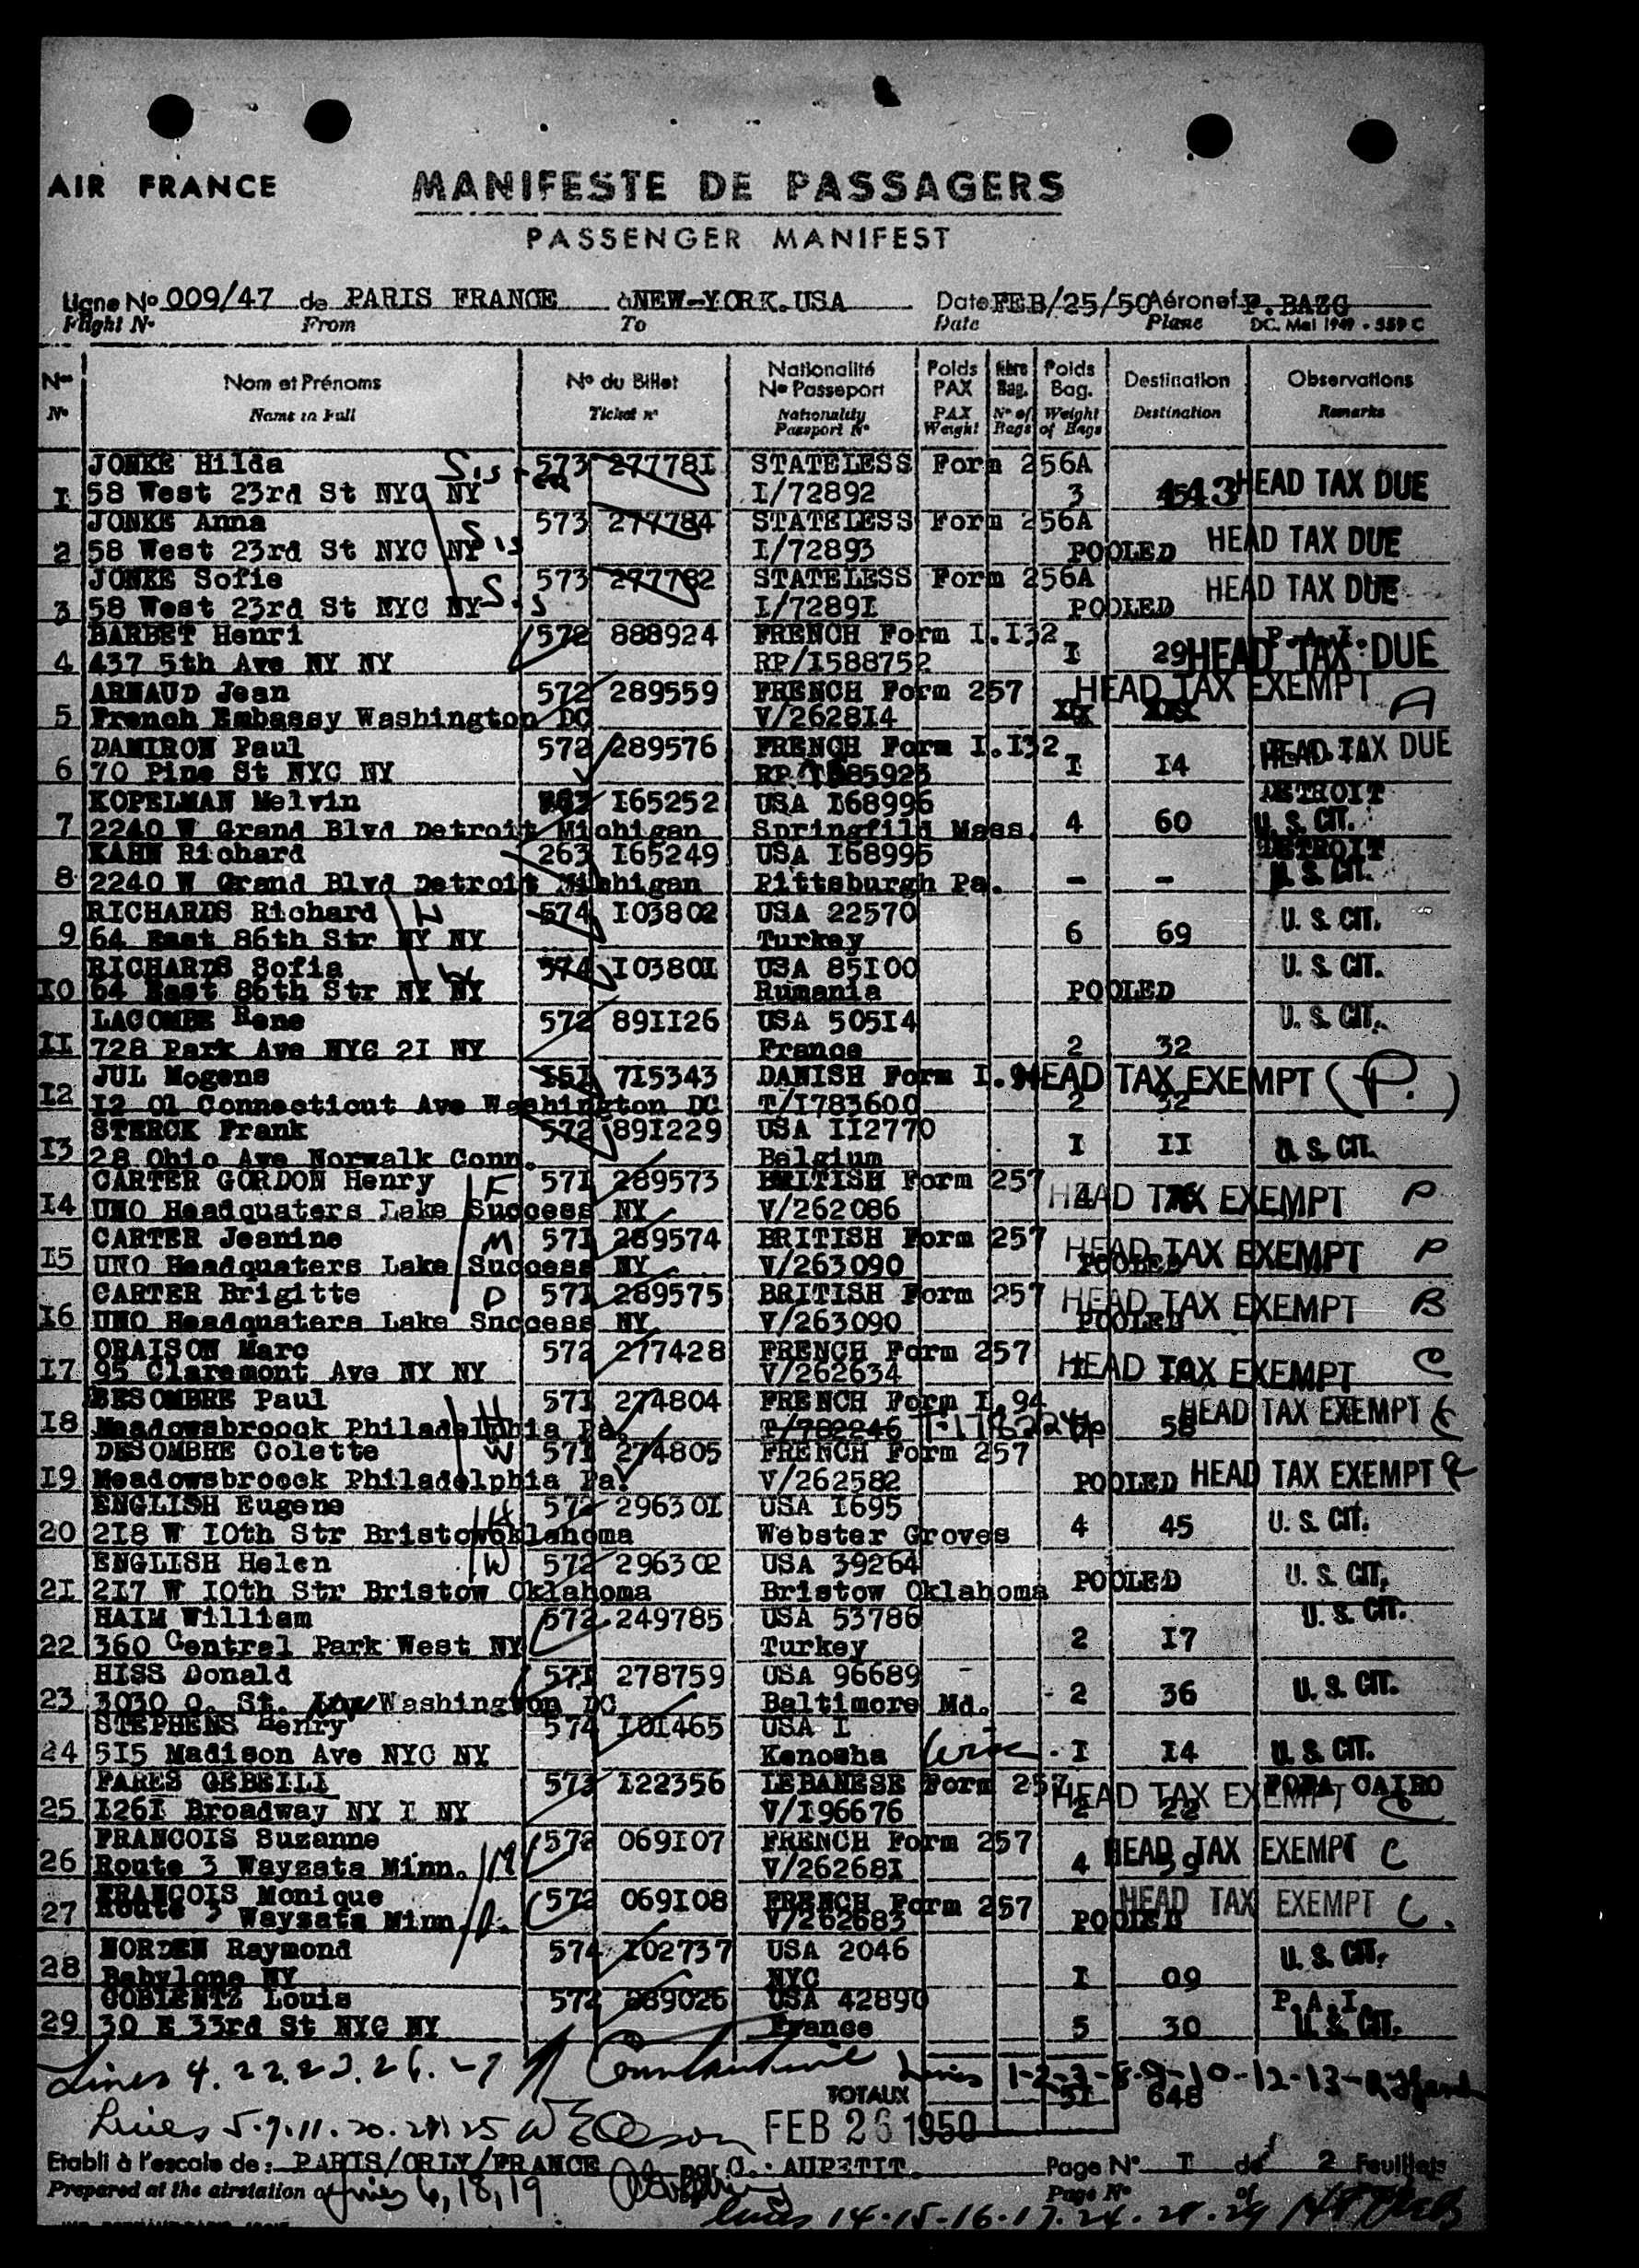 AIR FRANCE MANIFESTE DE PASSAGERS
PASSENGER MANIFEST
Ligne No 009/47 de PARIS FRANCE à NEW-YORK.USA Date FEB/25/50 Aéronef F. BAZG
Flight No From To Date Plane DC. Mai 1949 - 559 C
Nos Nom et Prénoms No du Billet Nationalité No Passeport Poids PAX Nbre Bag. Poids Bag. Destination Observations
No Name in Full Ticket no Nationality Passport No PAX Weight No of Bags Weight of Bags Destination Remarks
JONKE Hilda Sister 573 277781 STATELESS Form 256A
1 58 West 23rd St NYC NY I/72892 3 143 HEAD TAX DUE
JONKE Anna Sis 573 277784 STATELESS Form 256A HEAD TAX DUE
2 58 West 23rd St NYC NY I/72893 POOLED
JONKE Sofie Sis 573 277782 STATELESS Form 256A HEAD TAX DUE
3 58 West 23rd St NYC NY I/72891 POOLED
BARBET Henri 572 888924 FRENCH Form I.I32 P.A.I.
4 437 5th Ave NY NY RP/I588752 I 29 HEAD TAX DUE
ARNAUD Jean 572 289559 FRENCH Form 257 HEAD TAX EXEMPT A
5 French Embassy Washington DC V/262814
DAMIRON Paul 572 289576 FRENCH Form I.I32 HEAD TAX DUE
6 70 Pine St NYC NY I I4
KOPELMAN Melvin 263 I65252 USA I68996 DETROIT
7 2240 W Grand Blvd Detroit Michigan Springfild Mass. 4 60 U. S. CIT.
KAHN Richard 263 I65249 USA I68995 DETROIT
8 2240 W Grand Blvd Detroit Michigan Pittsburgh Pa. - - U. S. CIT.
RICHARDS Richard H 574 I03802 USA 22570 U. S. CIT.
9 64 East 86th Str NY NY Turkey 6 69
RICHARDS Sofia W 574 I03801 USA 85I00 U. S. CIT.
I0 64 East 86th Str NY NY Rumania POOLED
LACOMBE Rene 572 89II26 USA 505I4 U. S. CIT.
II 728 Park Ave NYC 2I NY France 2 32
JUL Mogens I5I 7I5343 DANISH Form I.94 HEAD TAX EXEMPT (P.)
I2 I2 01 Connecticut Ave Washington DC T/I783600 2 32
STERCK Frank 572 891229 USA II2770
I3 28 Ohio Ave Norwalk Conn. Belgium I II U. S. CIT.
CARTER GORDON Henry F 571 289573 BRITISH Form 257 HEAD TAX EXEMPT P
I4 UNO Headquaters Lake Success NY V/262086
CARTER Jeanine M 571 289574 BRITISH Form 257 HEAD TAX EXEMPT P
I5 UNO Headquaters Lake Success NY V/263090 POOLED
CARTER Brigitte D 571 289575 BRITISH Form 257 HEAD TAX EXEMPT B
I6 UNO Headquaters Lake Success NY V/263090 POOLED
ORAISON Marc 572 277428 FRENCH Form 257 HEAD TAX EXEMPT C
I7 95 Claremont Ave NY NY V/262634
DESOMBRE Paul H 571 274804 FRENCH Form I.94 HEAD TAX EXEMPT C
I8 Meadowsbroock Philadelphia Pa. T/782246 58
DESOMBRE Colette W 571 274805 FRENCH Form 257
I9 Meadowsbroock Philadelphia Pa. V/262582 POOLED HEAD TAX EXEMPT
ENGLISH Eugene H 572 296301 USA I695
20 2I8 W I0th Str Bristow Oklahoma Webster Groves 4 45 U. S. CIT.
ENGLISH Helen W 572 296302 USA 39264
2I 2I7 W I0th Str Bristow Oklahoma Bristow Oklahoma POOLED U. S. CIT.
HAIM William 572 249785 USA 53786 U. S. CIT.
22 360 Central Park West NY Turkey 2 I7
HISS Donald 571 278759 USA 96689
23 3030 O. St. Washington DC Baltimore Md. 2 36 U. S. CIT.
STEPHENS Henry 574 I01465 USA I
24 5I5 Madison Ave NYC NY Kenosha I I4 U. S. CIT.
FARES GEBEILI 573 I22356 LEBANESE Form 257 HEAD TAX EXEMPT CAIRO
25 I26I Broadway NY I NY V/I96676 2 22 C
FRANCOIS Suzanne 572 069I07 FRENCH Form 257
26 Route 3 Wayzata Minn. M V/26268I 4 39 HEAD TAX EXEMPT C
FRANCOIS Monique 572 069I08 FRENCH Form 257 HEAD TAX EXEMPT C.
27 Route 3 Wayzata Minn. D. V/262683 POOLED
NORDEN Raymond 574 I02737 USA 2046 U. S. CIT.
28 Babylone NY NYC I 09
COBLENTZ Louis 572 889026 USA 42890 P.A.I.
29 30 E 33rd St NYC NY France 5 30 U. S. CIT.
Lines 4. 22. 23. 26. 27 Lines 1-2-3-8-9-10-12-13-
TOTAUX 51 648
Lines 5.7.11.20.21.25 FEB 26 1950
Etabli à l'escale de: PARIS/ORLY/FRANCE par O. AUPETIT. Page No I de 2 Feuillets
Prepared at the airstation of Page No of
lines 6, 18, 19
lines 14-15-16-17-24-28-29